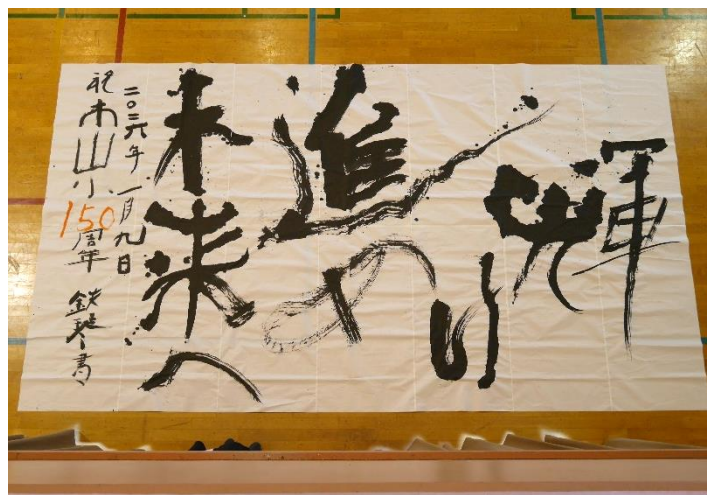 輝り
進め
未来へ
二〇二六年 一月九日
祝 木山小150周年 書